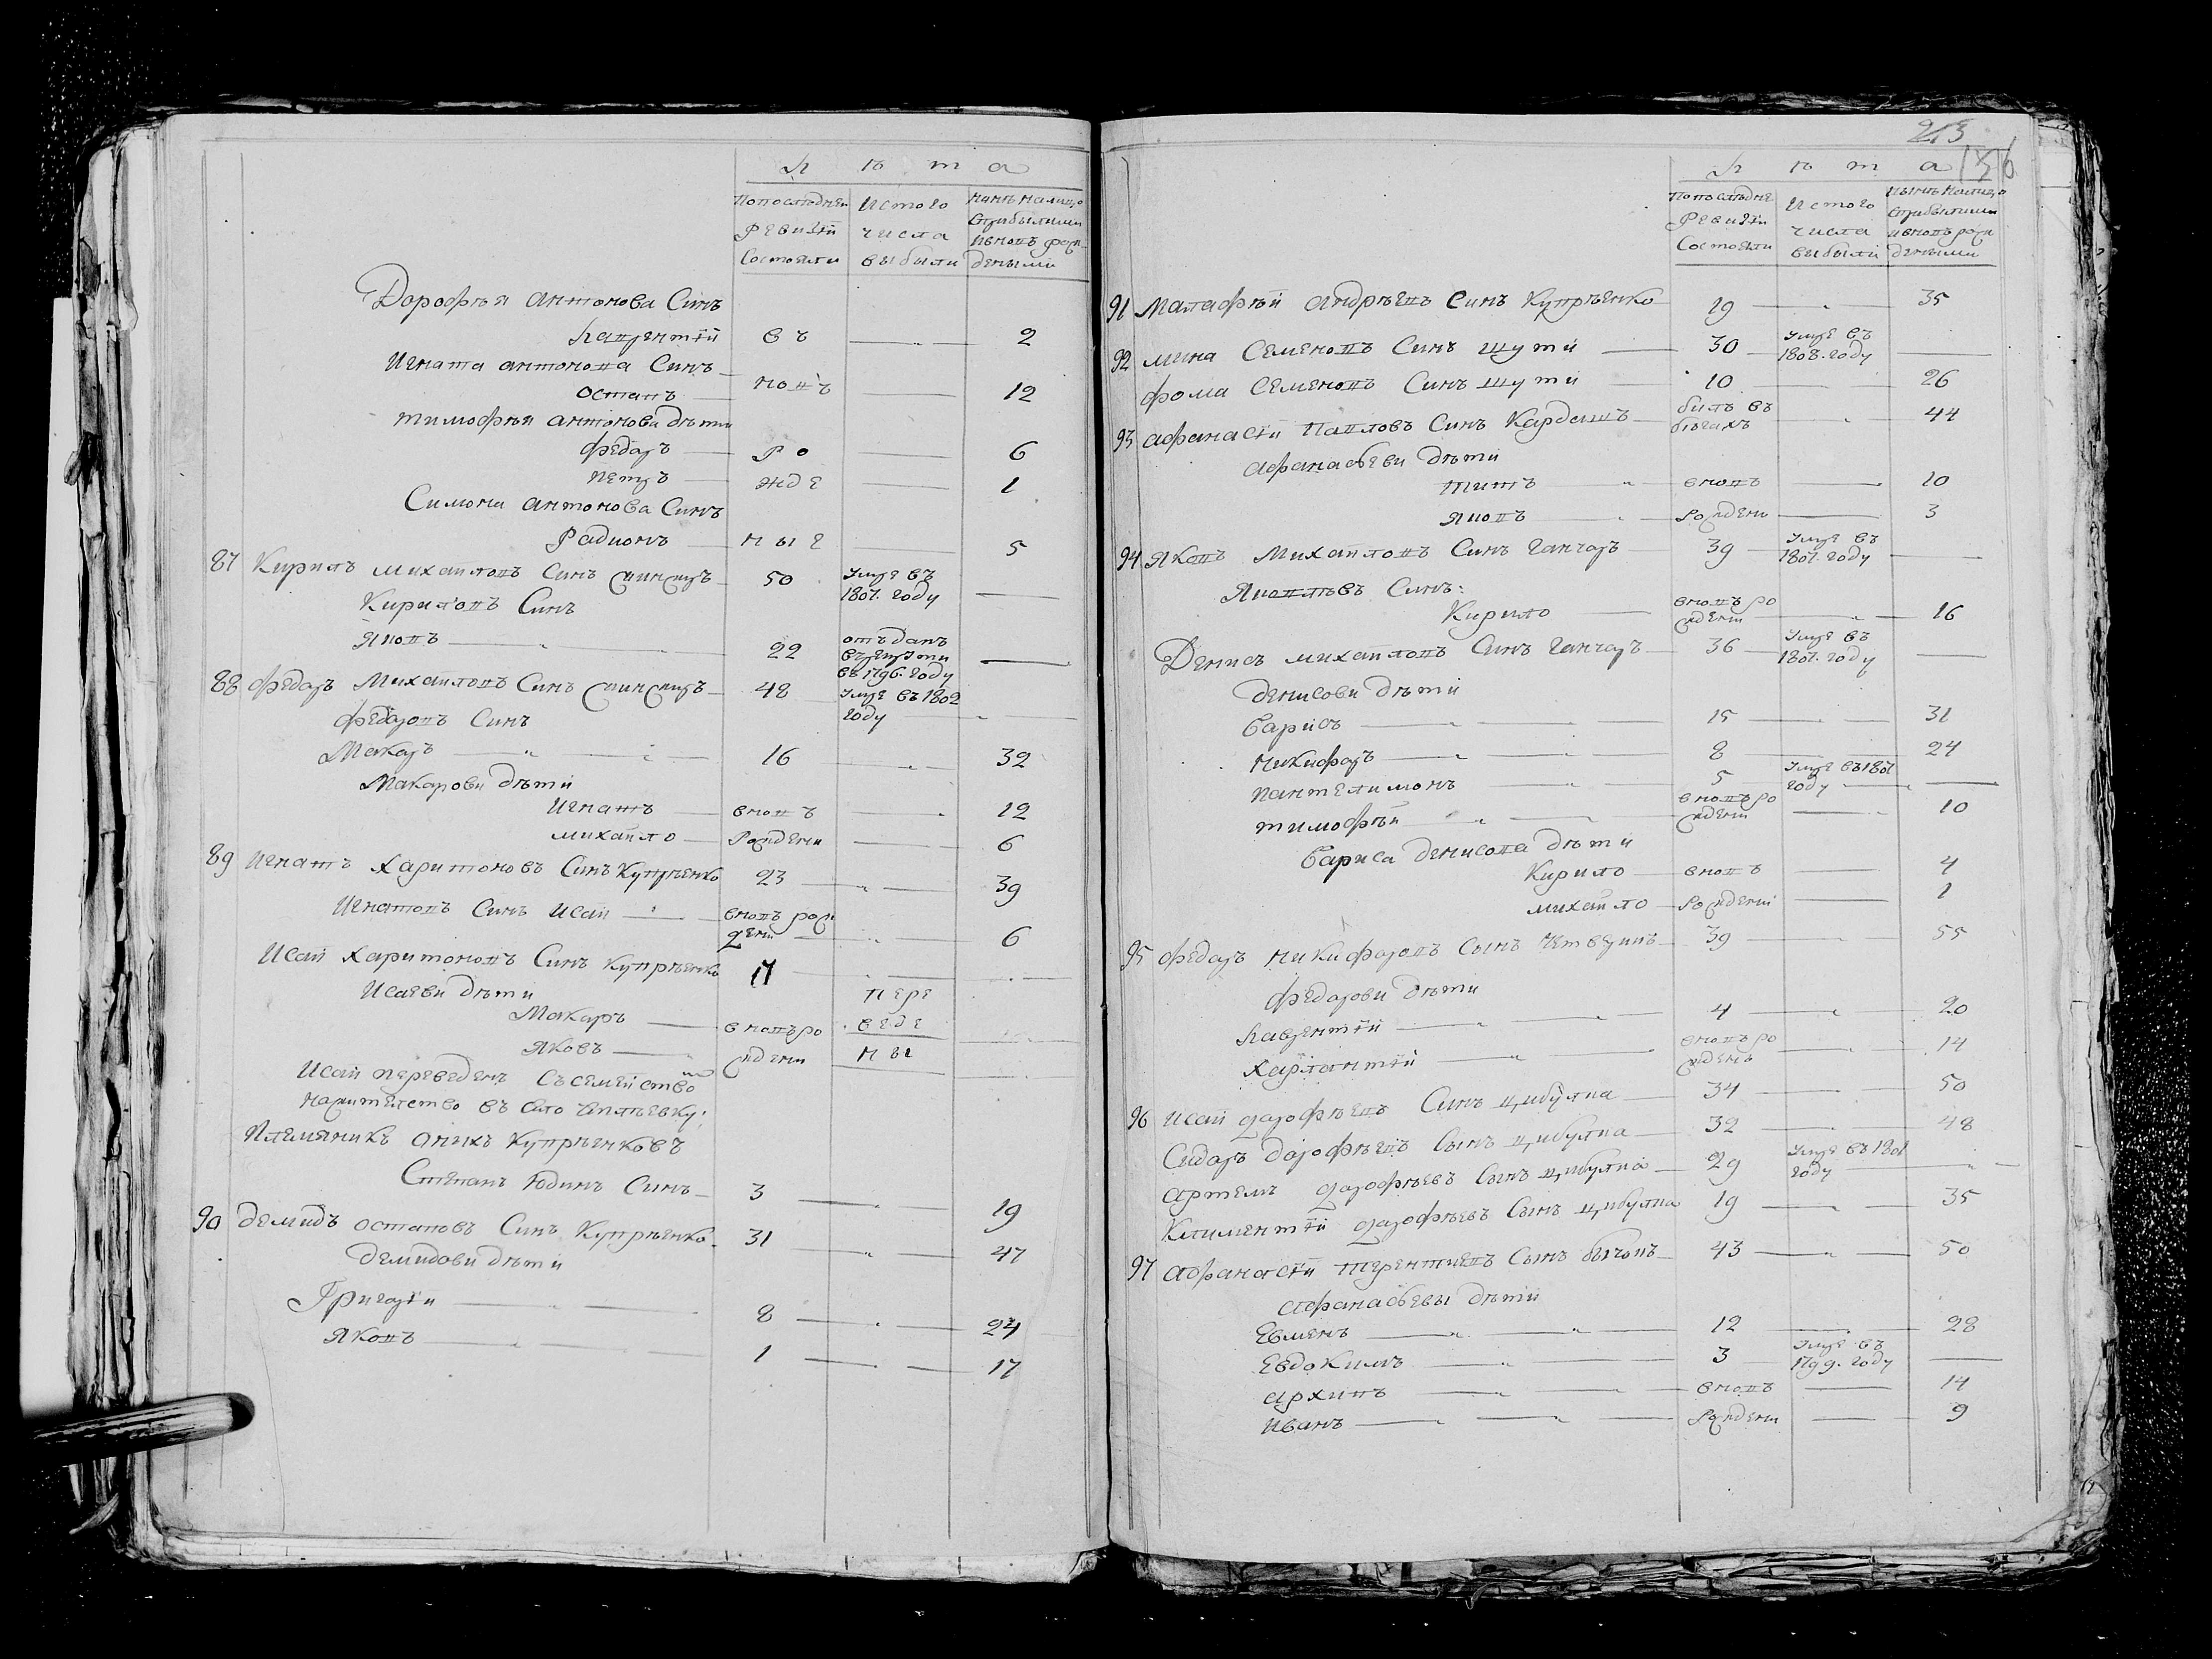 Л ѣ т а
Попоследнеи Истого Нынѣ налицо
Ревизіи числа Сприбылыми
Состояли выбыли ивновъ рож
деными
Дорофѣя антонова Синъ
Лаврентій въ 2
Игната антонова Синъ
Остапъ новъ 12
Тимофѣя антонови дѣти
Федоръ Ро 6
Петръ жде 1
Симона антонова Синъ
Радионъ ные 5
87 Кирилъ михайловъ Синъ 50 Умре въ
1807. году
Кириловъ Синъ
Яковъ 22 отъданъ
въ
въ 1796. году
88 Федоръ Михайловъ Синъ 48 Умре въ 1802
году
Федоровъ Синъ
Макаръ 16 32
Макарови дѣти
Игнатъ вновъ 12
Михайло Рождени 6
89 Игнатъ Харитоновъ Синъ Купрѣенко 23 39
Игнатовъ Синъ Исай вновъ рож
дени 6
Исай Харитоновъ Синъ Купрѣенко 17
Исаеви дѣти пере
Макаръ вновъ ро веде
Яковъ ждени ны
Исай переведенъ Съсемействомъ
нажителство въ село
Племяникъ онихъ Купрѣенковъ
Степанъ Юдинъ Синъ 3 19
90 Демидъ остаповъ Синъ Купрѣенко 31 47
Демидови дѣти
Григорій 8 24
Яковъ 1 17
213
156
Л ѣ т а
Попоследне Истого Нынѣ налицо
Ревизіи числа Сприбылыми
Состояли выбыли ивновъ рож
деными
91 Малафѣй андрѣевъ Синъ Купрѣенко 19 35
92 Мина Семеновъ Синъ Шутій 30 Умре въ
1808. году
Фома Семеновъ Синъ Шутій 10 26
93 Афанасій Павловъ Синъ Кардашъ билъ въ
бѣгахъ 44
Афанасѣеви дѣти
Титъ вновъ 10
Яковъ Рождени 3
94 Яковъ Михайловъ Синъ Ганчаръ 39 Умре въ
1807. году
Яковлѣвъ Синъ:
Кирило вновъ ро
ждени 16
Денисъ михайловъ Синъ Ганчаръ 36 Умре въ
1807. году
Денисови дѣти
Борисъ 15 31
Никифоръ 8 24
Пантелимонъ 5 Умре въ 1801
году
Тимофѣй вновъ ро
ждени 10
Бариса Денисова дѣти
Кирило вновъ 4
Михайло Рождени 1
95 Федоръ Никифоровъ Сынъ 39 55
Федорови дѣти
Лаврентій 4 20
Харлантій вновъ ро
жденъ 14
96 Исай дорофѣевъ Синъ цибулка 34 50
Сидоръ дорофѣевъ Сынъ цибулка 32 48
Артемъ дорофѣевъ Сынъ цибулка 29 Умре въ 1801
году
Климентій дорофѣевъ Сынъ цибулка 19 35
97 Афанасій терентиевъ Сынъ бычокъ 43 50
Афанасѣевы дѣти
Евменъ 12 28
Евдокимъ 3 Умре въ
1799. году
Архипъ вновъ 14
Иванъ Рождени 9